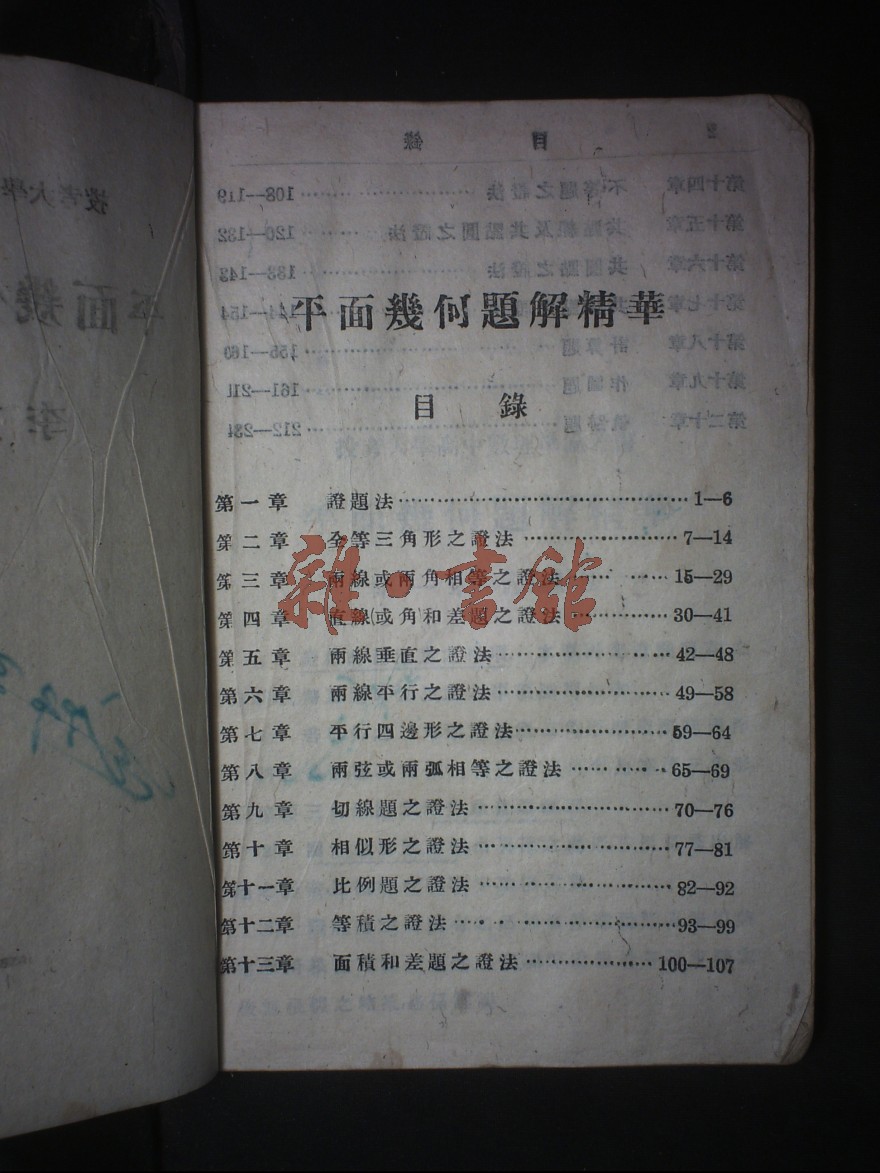 平面幾何題解精華
目錄
第一章 證題法 1—6
第二章 全等三角形之證法 7—14
第三章 兩線或兩角相等之證法 15—29
第四章 直線(或角)和差題之證法 30—41
第五章 兩線垂直之證法 42—48
第六章 兩線平行之證法 49—58
第七章 平行四邊形之證法 59—64
第八章 兩弦或兩弧相等之證法 65—69
第九章 切線題之證法 70—76
第十章 相似形之證法 77—81
第十一章 比例題之證法 82—92
第十二章 等積之證法 93—99
第十三章 面積和差題之證法 100—107
雜·書館